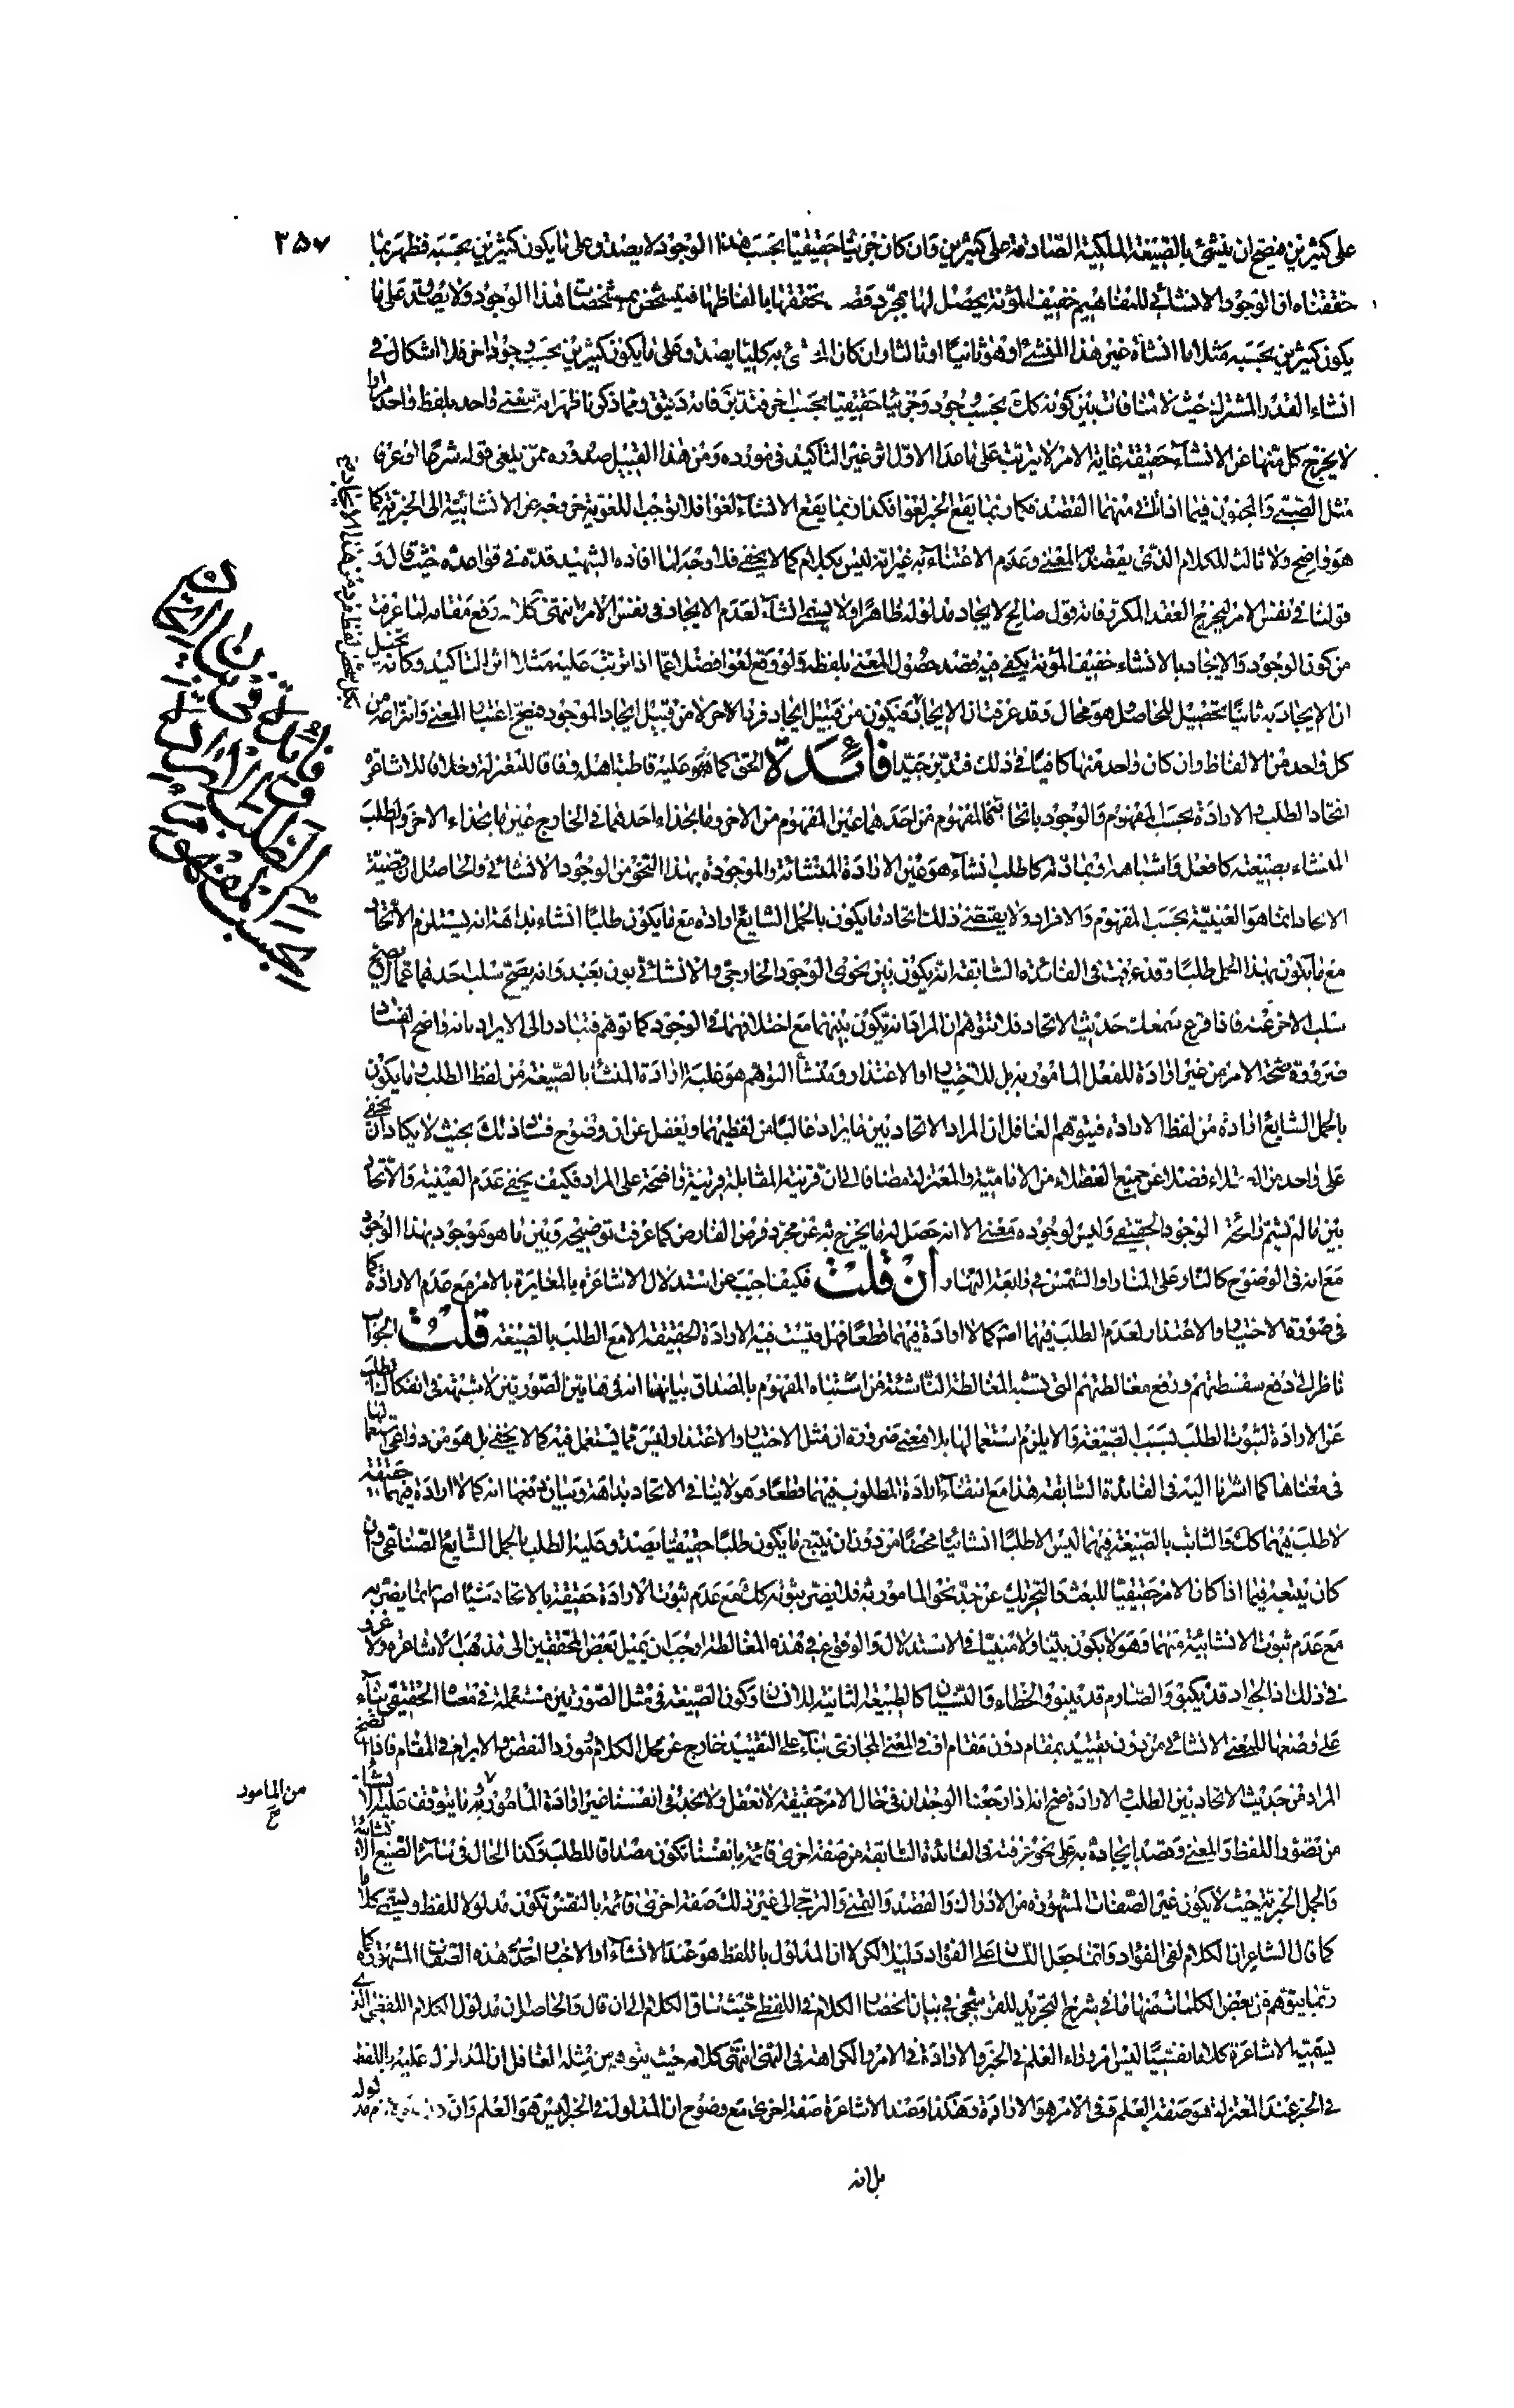 ٢٥٧
على كثيرين فيصح ان ينشئ بالصيغة الملكية الصادقة على كثيرين وان كان جزئيا حقيقيا بحسب هذا الوجود لا يصدق على ما يكون كثيرين بحسبه فظهر بما
حققناه ان الوجود الانشائى للمفاهيم خفيف المؤنة يحصل لها بمجرد قصد تحققها بالفاظها فيتشخص بمشخصات هذا الوجود ولا يصدق على ما
يكون كثيرين بحسبه مثلا ما انشأه غير هذا المنشئ او هو ثانيا او ثالثا وان كان كليا يصدق على ما يكون كثيرين بحسب وجود اخر فلا اشكال فى
انشاء القدر المشترك حيث لا منافات بين كونه كك بحسب وجود وجزئيا حقيقيا بحسب اخر فتدبر فانه دقيق ومما ذكرنا ظهر انه معنى واحد بلفظ واحد مرارا
لا يخرج كل منها عن الانشاء حقيقة غاية الامر لا يترتب على ما عدا الاول اثر غير التاكيد فى مورده ومن هذا القبيل صدوره ممن يلغى قوله شرعا او عرفا
مثل الصبى والمجنون فيما اذا تاتى منهما القصد فكما ربما يقع الخبر لغوا فكذا ربما يقع الانشاء لغوا فلا توجب اللغوية خروجه عن الانشائية الى الخبرية كما
هو واضح ولا ثالث للكلام الذى يقصد به المعنى وعدم الاعتناء به غير انه ليس بكلام كما لا يخفى فلا وجه لما افاده الشهيد قده فى قواعده حيث قال و
قولنا فى نفس الامر ليخرج العقد المكرر فانه قول صالح لايجاد مدلوله ظاهرا ولا يسمى انشاء لعدم الايجاد فى نفس الامر انتهى كلامه رفع مقامه لما عرفت
من كون الوجود والايجاد بالانشاء خفيف المؤنة يكفى فيه قصد حصول المعنى بلفظه ولو وقع لغوا فضلا عما اذا ترتب عليه مثلا اثر التاكيد وكانه تخيل
ان الايجاد به ثانيا تحصيل للحاصل وهو محال وقد عرفت ان الايجاد فيكون من قبيل ايجاد فرد الاخر لا من قبيل ايجاد الموجود فيصح اعتبار المعنى وانتزاعه من
كل واحد من الالفاظ وان كان واحد منها كافيا فى ذلك فتدبر جيدا فائدة الحق كما هو عليه قاطبة اهل وفاقا للمعتزلة وخلافا للاشاعرة
اتحاد الطلب والارادة بحسب المفهوم والوجود بانحائه فالمفهوم من احدهما عين المفهوم من الاخر وما بحذاء احدهما فى الخارج عين ما بحذاء الاخر والطلب
المنشاء بصيغته كافعل واشباهه وبمادته كاطلب انشاء هو عين الارادة المنشائة والموجودة بهذا النحو من الوجود الانشائى والحاصل ان قضية
الاتحاد انما هو العينية بحسب المفهوم والافراد ولا يقتضى ذلك اتحاد ما يكون بالحمل الشايع ارادة مع ما يكون طلبا انشاء بداهة انه ليستلزم الاتحاد
مع ما يكون بهذا الحمل طلبا وقد عرفت فى الفائدة السابقة انه يكون بين نحوى الوجود الخارجى والانشائى بون بعيد وانه يصح سلب احدهما عما لا يصح
سلب الاخر عنه فاذا قرع سمعك حديث الاتحاد فلا تتوهم ان المراد انه يكون بينهما مع اختلافهما فى الوجود كما توهم فتبادر الى الايراد بانه واضح الفساد
ضرورة صحة الامر من غير ارادة للفعل المامور به بل للاختبار او الاعتذار ومنشأ التوهم هو غلبة ارادة المنشأ بالصيغة من لفظ الطلب وما يكون
بالحمل الشايع ارادة من لفظ الارادة فيتوهم الغافل ان المراد الاتحاد بين ما يراد غالبا من لفظيهما ويغفل عن ان وضوح فساد ذلك بحيث لا يكاد ان يخفى
على واحد من العقلاء فضلا عن جميع الفضلاء من الامامية والمعتزلة مضافا الى ان قرينة المقابلة قرينة واضحة على المراد فكيف يخفى عدم العينية والاتحاد
بين ما لم يشم رائحة الوجود الحقيقى وليس لوجوده معنى الا انه حصل له ما يخرج به عن مجرد فرض الفارض كما عرفت توضيحه وبين ما هو موجود بهذا الوجود
مع انه فى الوضوح كالنار على المنار او الشمس فى رابعة النهار ان قلت فكيف اجيب عن استدلال الاشاعرة بالمغايرة بالامر مع عدم الارادة كما
فى صورة الاختبار والاعتذار لعدم الطلب فيهما اصلا كما لا ارادة فيهما قطعا فهل فتيت فيه الارادة الحقيقة الا مع الطلب بالصيغة قلت الجواب
ناظر الى دفع سفسطتهم ورفع مغالطتهم التى تشبه المغالطة الناشئة من اشتباه المفهوم بالمصداق بيانها انه فى هاتين الصورتين لا شبهة فى انفكاك الطلب
عن الارادة لثبوت الطلب بسبب الصيغة والا يلزم استعمالها بلا معنى ضرورة ان مثل الاختبار والاعتذار ليس مما يستعمل فيه كما لا يخفى بل هو من دواعى استعمالها
فى معناها كما اشرنا اليه فى الفائدة السابقة هذا مع انتفاء ارادة المطلوب فيهما قطعا وهو لا ينافى الاتحاد بداهة وبيان دفعها انه كما لا ارادة فيهما حقيقة
لا طلب فيهما كك والثابت بالصيغة فيهما ليس الا طلبا انشائيا محضا من دون ان يتبع ما يكون طلبا حقيقيا يصدق عليه الطلب بالحمل الشايع الصناعى وان
كان يتبعه فيما اذا كان الامر حقيقيا للبعث والتحريك عن جد نحو المامور به فلا يضر ثبوته كك مع عدم ثبوت الارادة حقيقة بالاتحاد شيئا اصلا انما يضر به
مع عدم ثبوت الانشائية منهما وهو لا يكون بينا ولا مبينا فى الاستدلال والوقوع فى هذه المغالطة اوجب ان يميل بعض المحققين الى مذهب الاشاعرة ولا غرو
فى ذلك اذ الجواد قد يكبو والصارم قد ينبو والخطاء والنسيان كالطبيعة الثانية للانسان وكون الصيغة فى مثل الصورتين مستعملة فى معناها الحقيقى بناء
على وضعها للمعنى الانشائى من دون تقييد بمقام دون مقام او فى المعنى المجازى بناء على التقييد خارج عن محل الكلام ومورد النقض والابرام فى المقام فاذا اتضح
المراد من حديث الاتحاد بين الطلب والارادة صح انه اذا رجعنا الوجدان فى حال الامر حقيقة لا نعقل ولا نجد فى انفسنا غير ارادة المامور به وما يتوقف عليه الانشاء
من تصور اللفظ والمعنى وقصد ايجاده به على نحو عرفته فى الفائدة السابقة من صفة اخرى قائمة بانفسنا تكون مصداقا للطلب وكذا الحال فى سائر الصيغ الانشائية
والجمل الخبرية حيث لا يكون غير الصفات المشهورة من الادراك والقصد والتمنى والترجى الى غير ذلك صفة اخرى قائمة بالنفس تكون مدلولا للفظ ويسمى كلاما
كما قال الشاعر ان الكلام لفى الفؤاد وانما جعل اللسان على الفؤاد دليلا لكن لا ان المدلول باللفظ هو عند الانشاء او الاخبار احدى هذه الصفات المشهورة كما
ربما يتوهم من بعض الكلمات منها ما فى شرح التجريد للقوشجى فى بيان انحصار الكلام فى اللفظى حيث ساق الكلام الى ان قال والحاصل ان مدلول الكلام اللفظى الذى
يسميه الاشاعرة كلاما نفسيا ليس امرا وراء العلم فى الخبر والارادة فى الامر والكراهة فى النهى انتهى كلامه حيث يتوهم من مثله الغافل ان المدلول عليه باللفظ
فى الخبر عند المعتزلة هو صفة العلم وفى الامر هو الارادة وهكذا وعند الاشاعرة صفة اخرى مع وضوح ان المدلول فى الخبر ليس هو العلم وان
بل انه
فائدة فى بيان ان
الطلب والارادة
بحسب المفهوم
من المامور